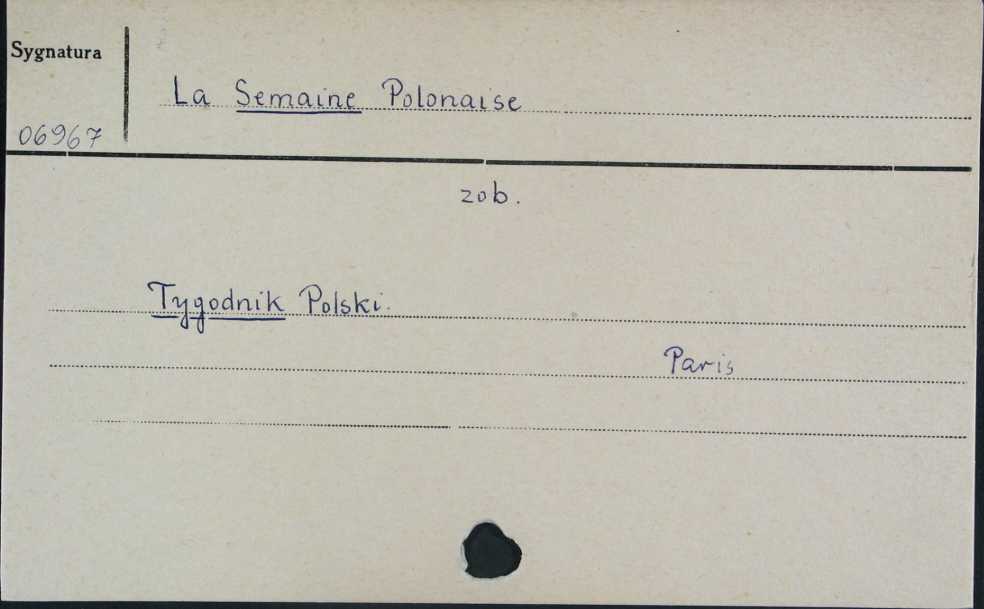 Sygnatura
La Semaine Polonaise
06967
zob.
Tygodnik Polski.
Paris